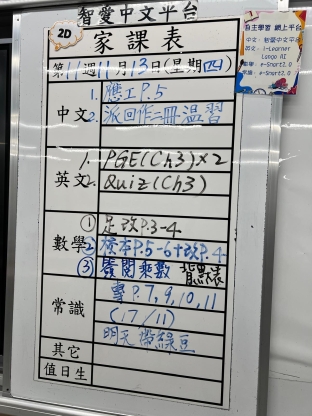 智愛中文平台
2D
家課表
第11週11月13日(星期四)
中文
1. 應工P.5
2. 派回作二冊溫習
英文
1. PGE(Ch3)×2
2. Quiz(Ch3)
數學
① 足改P.3-4
② 校本P.5-6+改P.4
③ 養閱乘數 背默表
常識
P.7,9,10,11
(17/11)
明天帶綠豆
其它
值日生
自主學習 網上平台
中文：智愛中文平台
英文：i-Learner
Lango AI
數學：e-Smart2.0
常識：e-Smart2.0